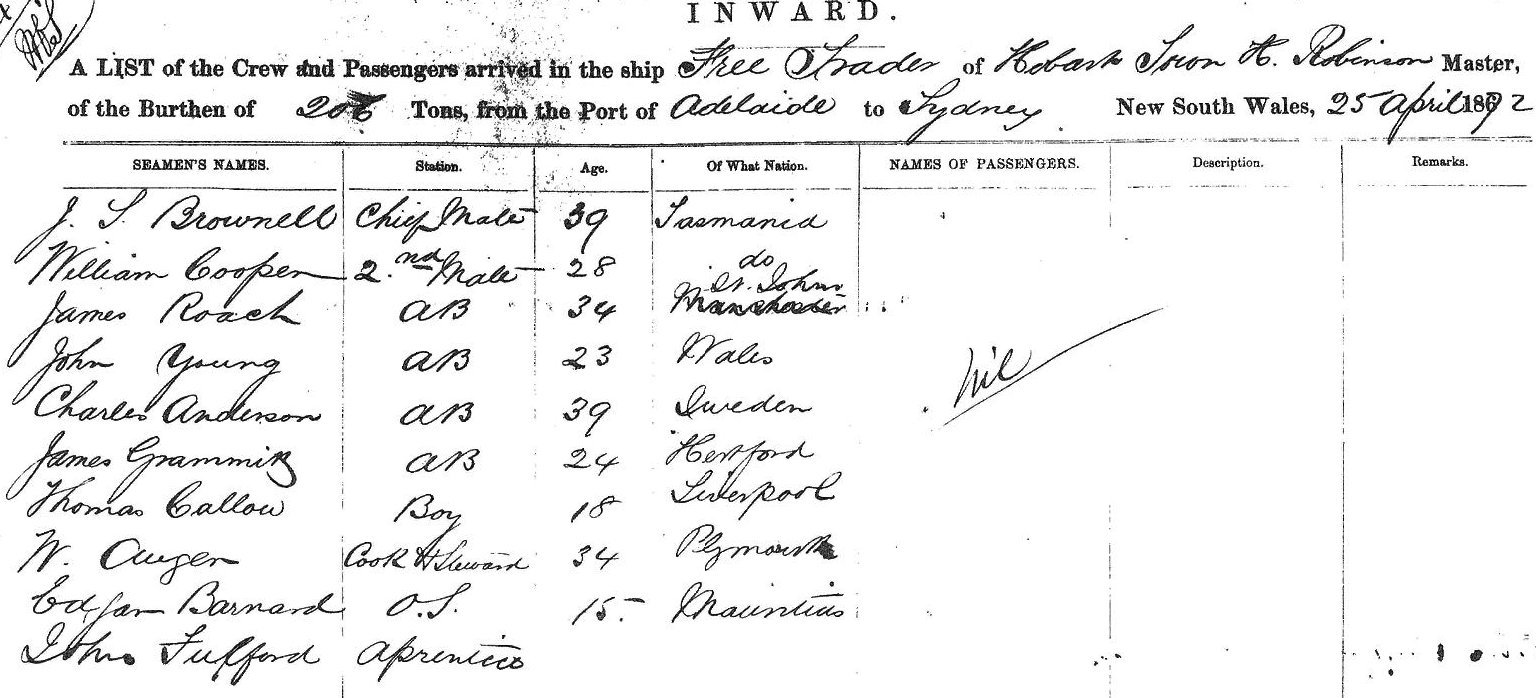 INWARD.
A LIST of the Crew and Passengers arrived in the ship Free Trader of Hobart Town H. Robinson Master,
of the Burthen of 206 Tons, from the Port of Adelaide to Sydney New South Wales, 25 April 1872
SEAMEN'S NAMES. Station. Age. Of What Nation. NAMES OF PASSENGERS. Description. Remarks.
J. S. Brownell Chief Mate 39 Tasmania
William Cooper 2nd Mate 28 do
James Roach AB 34 St. Johns Manchester
John Young AB 23 Wales
nil
Charles Anderson AB 39 Sweden
James AB 24 Hertford
Thomas Callow Boy 18 Liverpool
W. Auger Cook & Steward 34 Plymouth
Edgar Barnard O.S. 15. Mauritius
John Fulford Aprentice